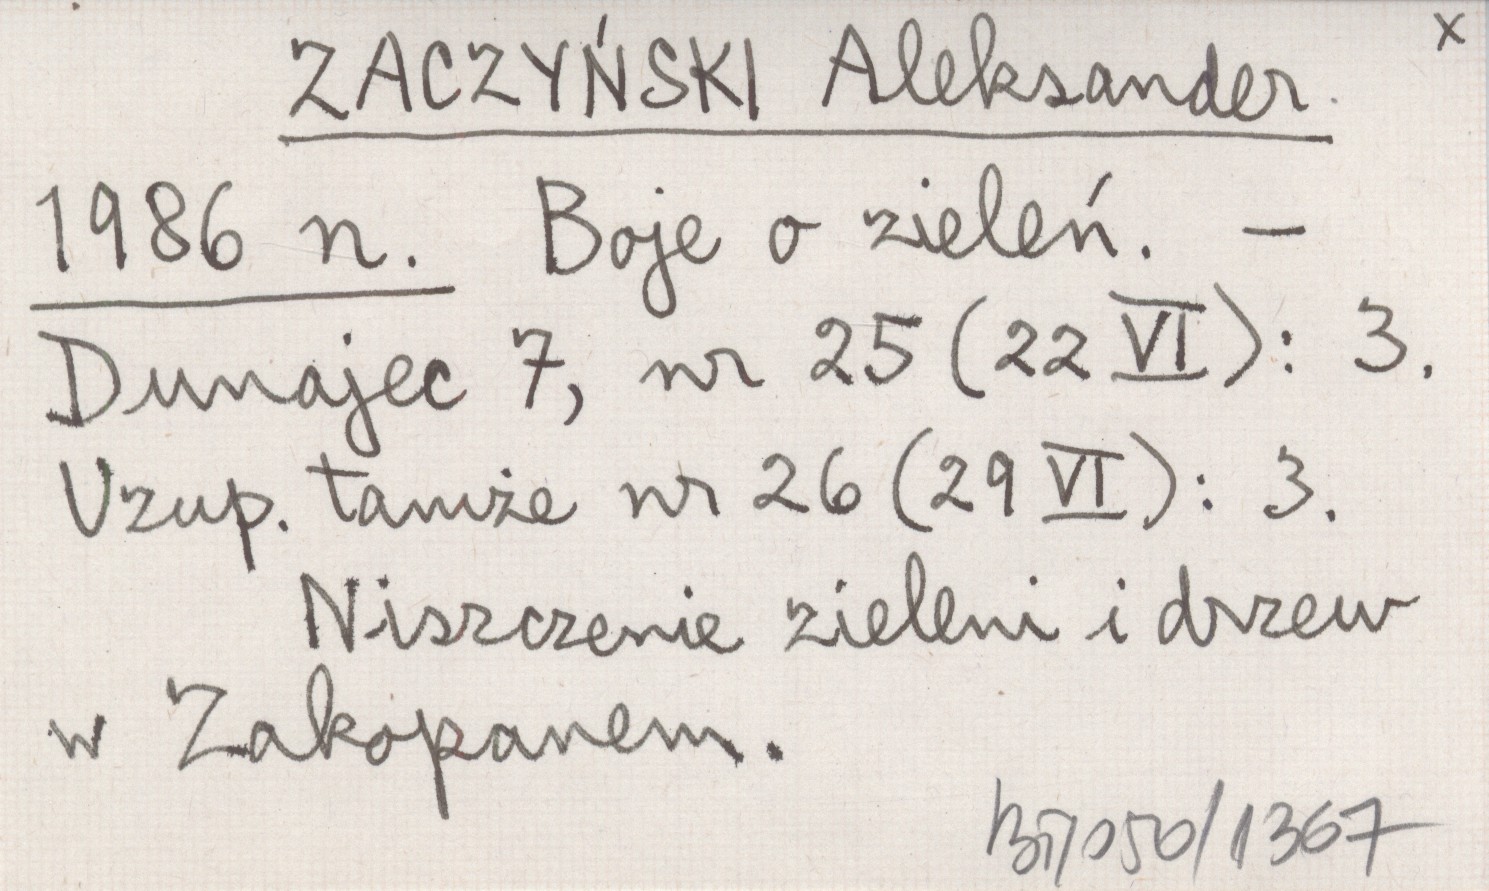 x
ZACZYŃSKI Aleksander.
1986 r. Boje o zieleń. –
Dunajec 7, nr 25 (22 VI): 3.
Uzup. tamże nr 26 (29 VI): 3.
Niszczenie zieleni i drzew
w Zakopanem.
BT/050/1367